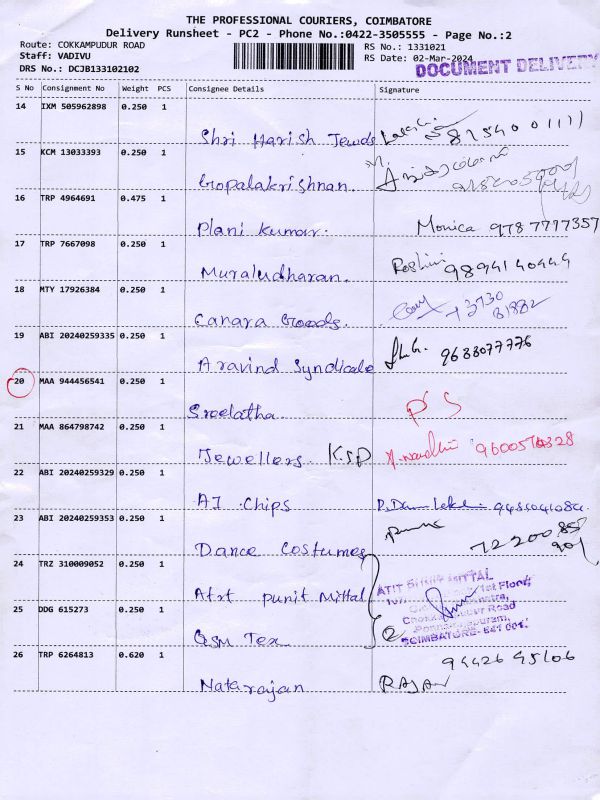 THE PROFESSIONAL COURIERS, COIMBATORE
Delivery Runsheet - PC2 - Phone No.:0422-3505555 - Page No.:2
Route: COKKAMPUDUR ROAD RS No.: 1331021
Staff: VADIVU RS Date: 02-Mar-2024
DRS No.: DCJB133102102 DOCUMENT DELIVERY
S No Consignment No Weight PCS Consignee Details Signature
14 IXM 505962898 0.250 1
Shri Harish Jewels
15 KCM 13033393 0.250 1
Gopalakrishnan.
16 TRP 4964691 0.475 1
Plani Kumar. Monica 978 7797357
17 TRP 7667098 0.250 1
Muraludharan. Roshini 9894140444
18 MTY 17926384 0.250 1
Canara Goods. 73730 81882
19 ABI 20240259335 0.250 1
Aravind Syndicate 9688077776
20 MAA 944456541 0.250 1
Sreelatha. PS
21 MAA 864798742 0.250 1
Jewellers. KSP
22 ABI 20240259329 0.250 1
AI Chips
23 ABI 20240259353 0.250 1
Dance Costumes 72200
24 TRZ 310009052 0.250 1
Atit punit Mittal ATIT MITTAL
1st Floor,
25 DDG 615273 0.250 1
Road
Qsm Tex COIMBATORE- 641 001.
26 TRP 6264813 0.620 1 94426 45106
Natarajan RAJAN